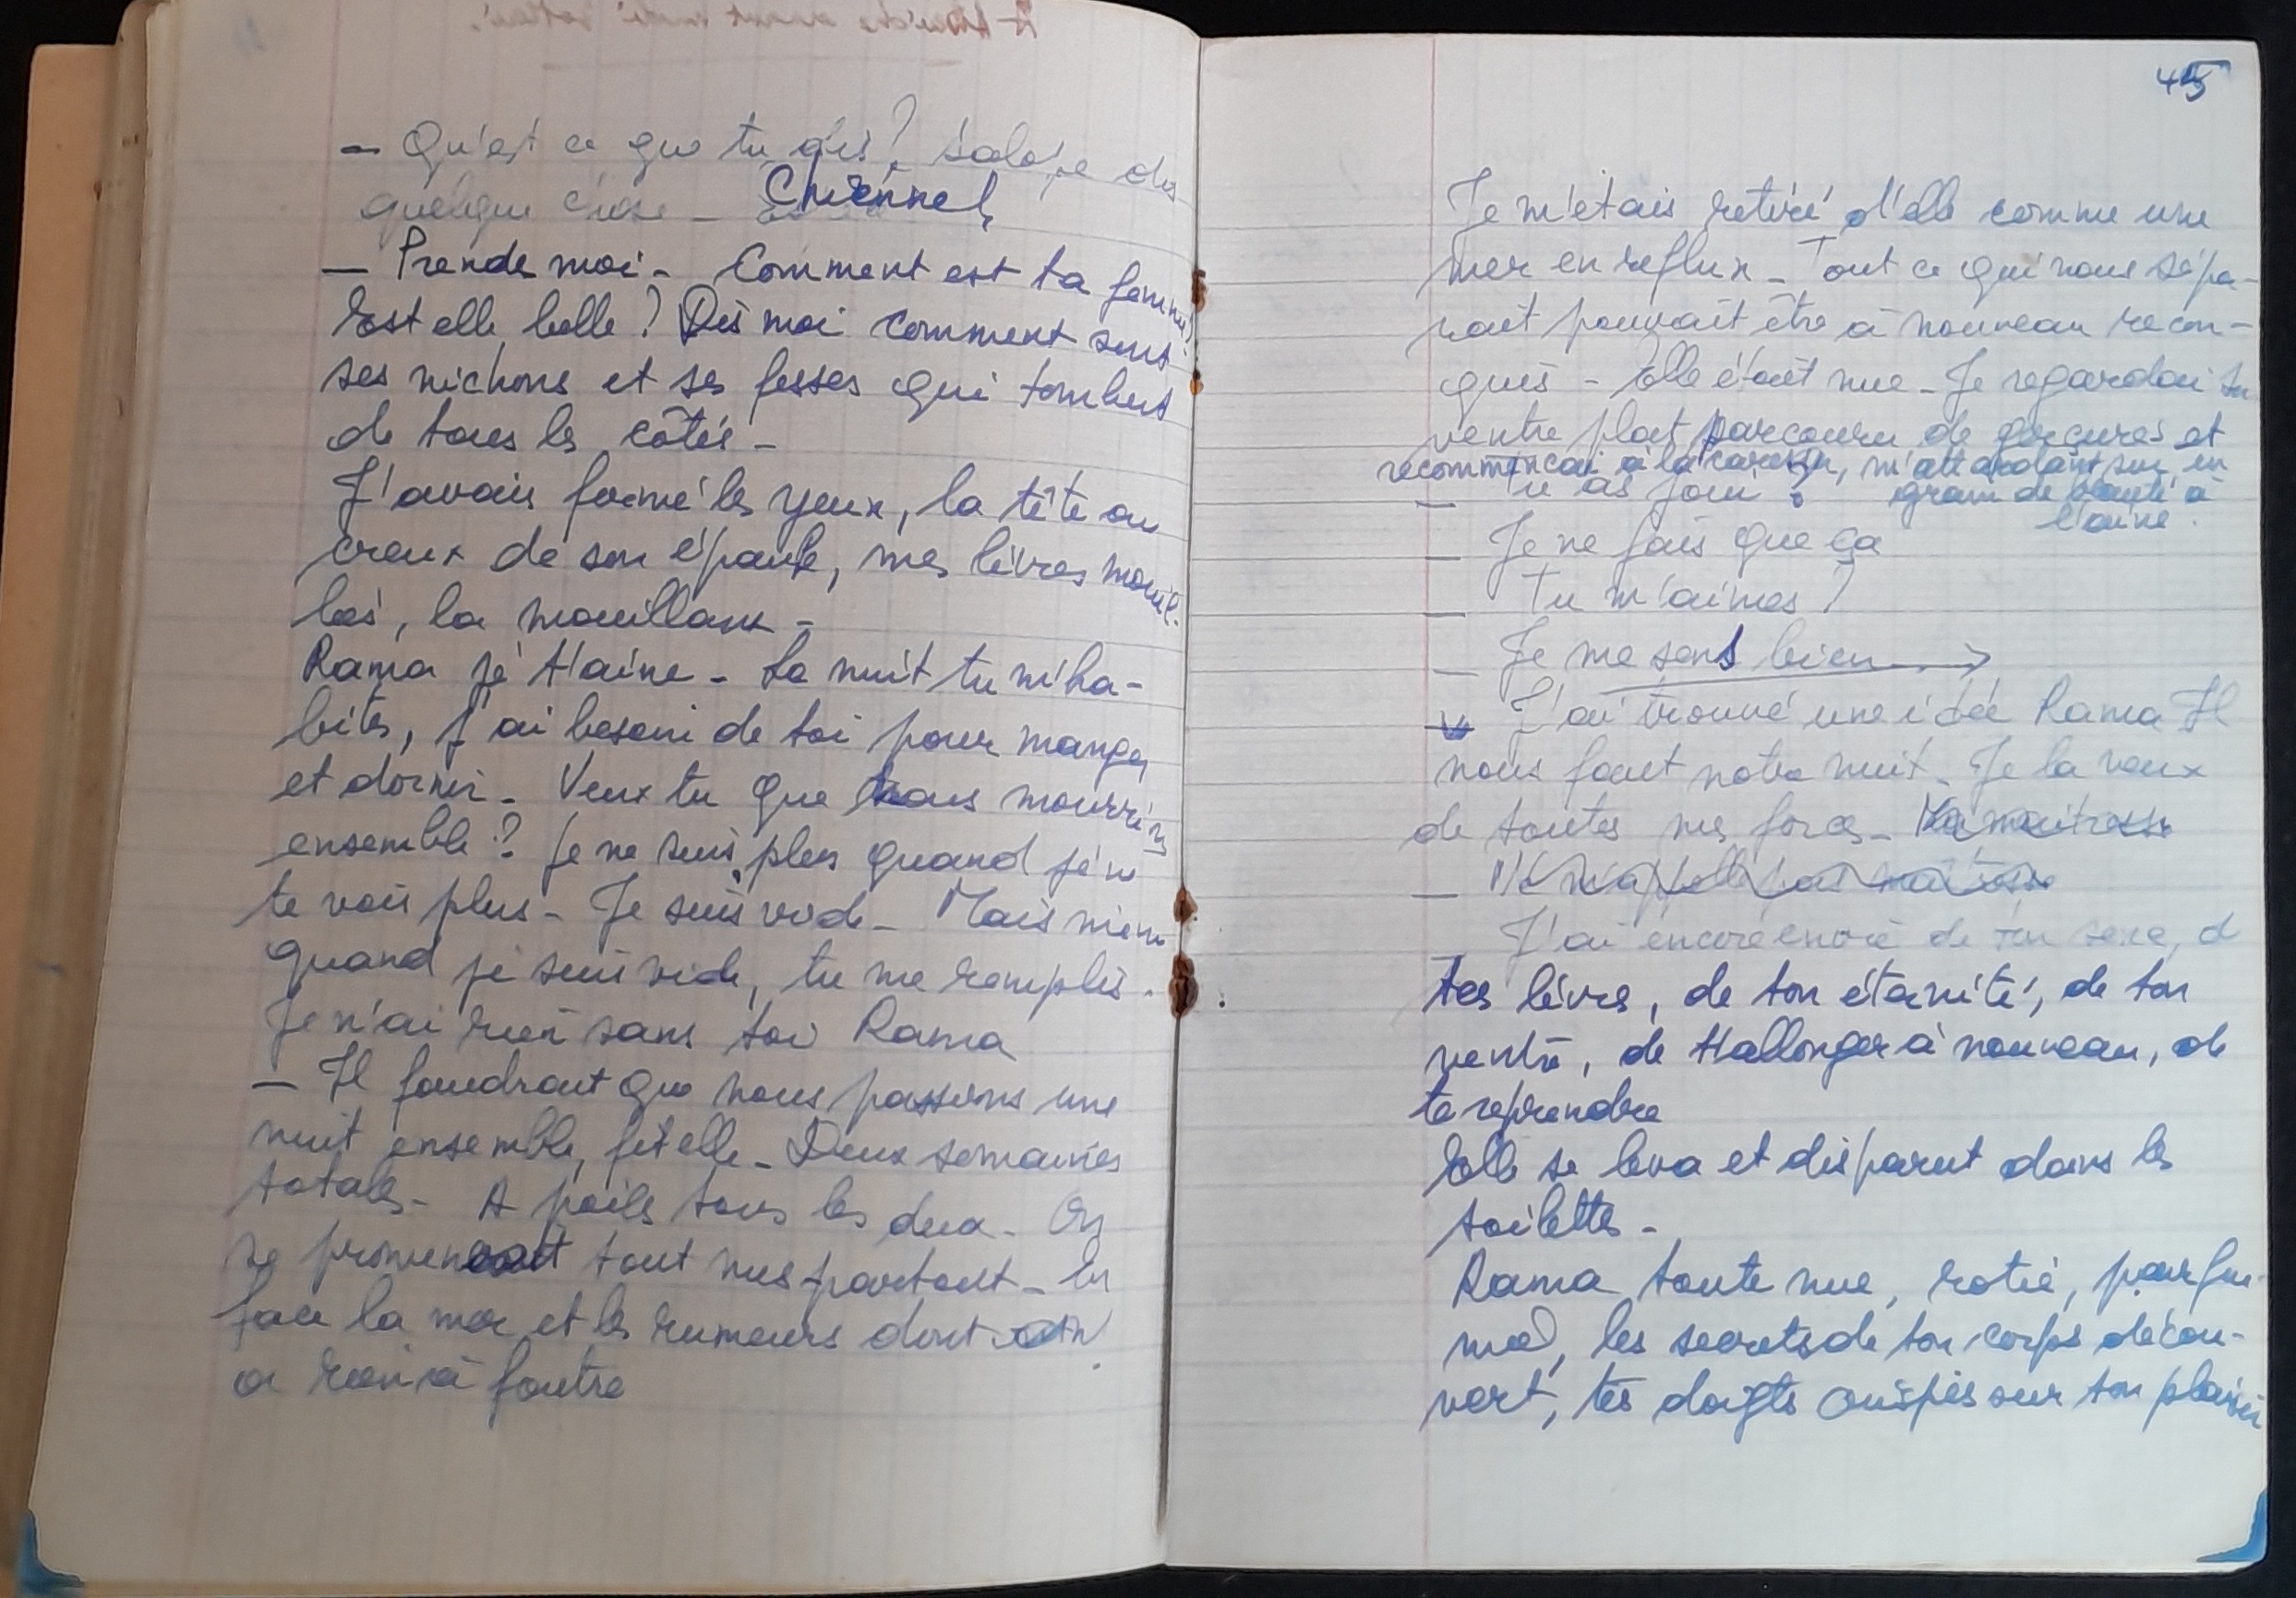 — Qu'est ce que tu dis? Salope dis
quelque chose – Chiennel
— Prends moi – Comment est ta femme?
Est elle belle? Dis moi comment sont
ses nichons et ses fesses qui tombent
de tous les côtés –
J'avais fermé les yeux, la tête au
creux de son épaule, mes lèvres mouil-
lés, la mouillant –
Rama je t'aime – La nuit tu m'ha-
bites, j'ai besoin de toi pour manger
et dormir – Veux tu que nous mourrions
ensemble? Je ne suis plus quand je ne
te vois plus – Je suis vide – Mais même
quand je suis vide, tu me remplis.
Je n'ai rien sans toi Rama
— Il faudrait que nous passions une
nuit ensemble, fit elle – Deux semaines
totales – A poils tous les deux – On
se promenerait tout nus partout – En
face la mer et les rumeurs dont on
a rien à foutre
45
Je m'étais retiré d'elle comme une
mer en reflux – Tout ce qui nous sépa-
rait pouvait être à nouveau recon-
quis – Elle était nue – Je regardai son
ventre plat parcouru de gerçures et
recommençai à la caresser, m'attardant sur un
grain de beauté à
l'aine.
— Tu as joui?
— Je ne fais que ça
— Tu m'aimes?
— Je me sens bien →
— J'ai trouvé une idée Rama Il
nous faut notre nuit – Je la veux
de toutes mes forces – Ma maitresse
— Ne m'appelle pas maîtresse
— J'ai encore envie de ton sexe, de
tes lèvres, de ton éternité, de ton
ventre, de t'allonger à nouveau, de
te reprendre
Elle se leva et disparut dans les
toilettes –
Rama toute nue, rotie, parfu-
mée, les secrets de ton corps décou-
vert, tes doigts crispés sur ton plaisir